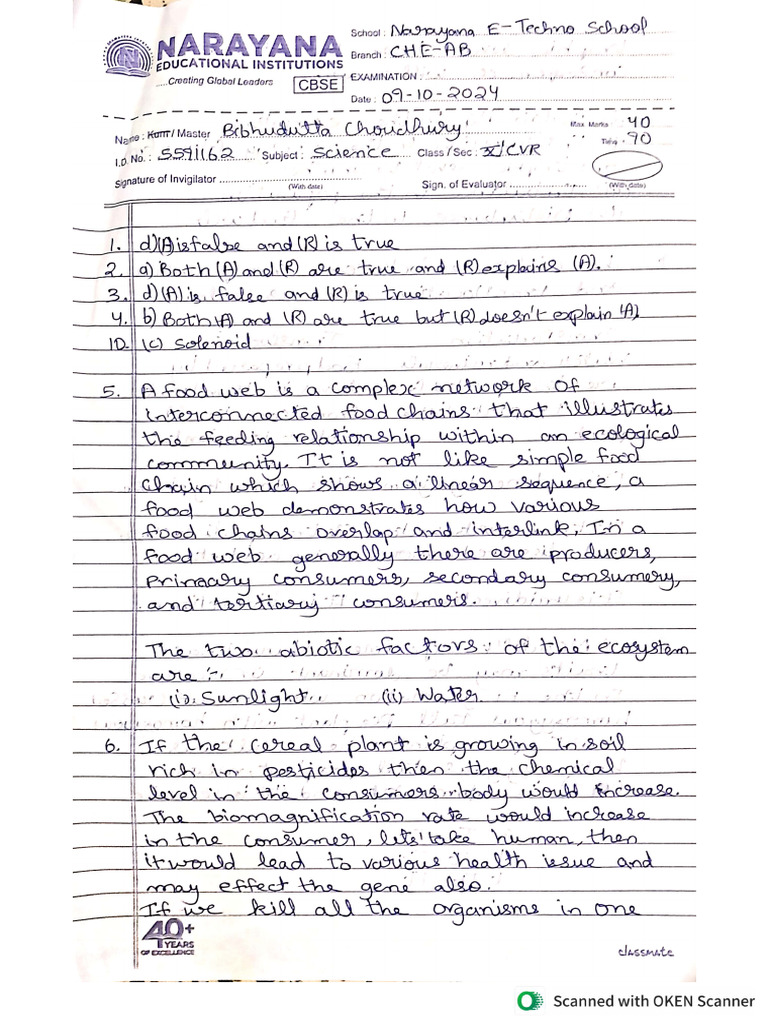 NARAYANA
EDUCATIONAL INSTITUTIONS
.....Creating Global Leaders
CBSE
School : Narayana E-Techno School
Branch : CHE-AB
EXAMINATION :
Date : 09-10-2024
Name : Kum / Master Bibhudutta Choudhury
Max. Marks 40
I.D. No. : 5591162 Subject : Science Class/Sec : X/CVR
Time 90
Signature of Invigilator (With date) Sign. of Evaluator (With date)
1. d)(A) is false and (R) is true
2. a) Both (A) and (R) are true and (R) explains (A).
3. d) (A) is false and (R) is true
4. b) Both (A) and (R) are true but (R) doesn't explain (A).
10. (c) Solenoid
5. A food web is a complex network of
interconnected food chains that illustrates
the feeding relationship within an ecological
community. It is not like simple food
chain which shows a linear sequence, a
food web demonstrates how various
food chains overlap and interlink. In a
food web generally there are producers,
primary consumers, secondary consumery,
and tertiary consumers.
The two abiotic factors of the ecosystem
are :-
(i) Sunlight (ii) Water
6. If the cereal plant is growing in soil
rich in pesticides then the chemical
level in the consumers body would increase.
The biomagnification rate would increase
in the consumer, lets' take human, then
it would lead to various health issue and
may effect the gene also.
If we kill all the organisms in one
40+
YEARS
OF EXCELLENCE
classmate
Scanned with OKEN Scanner